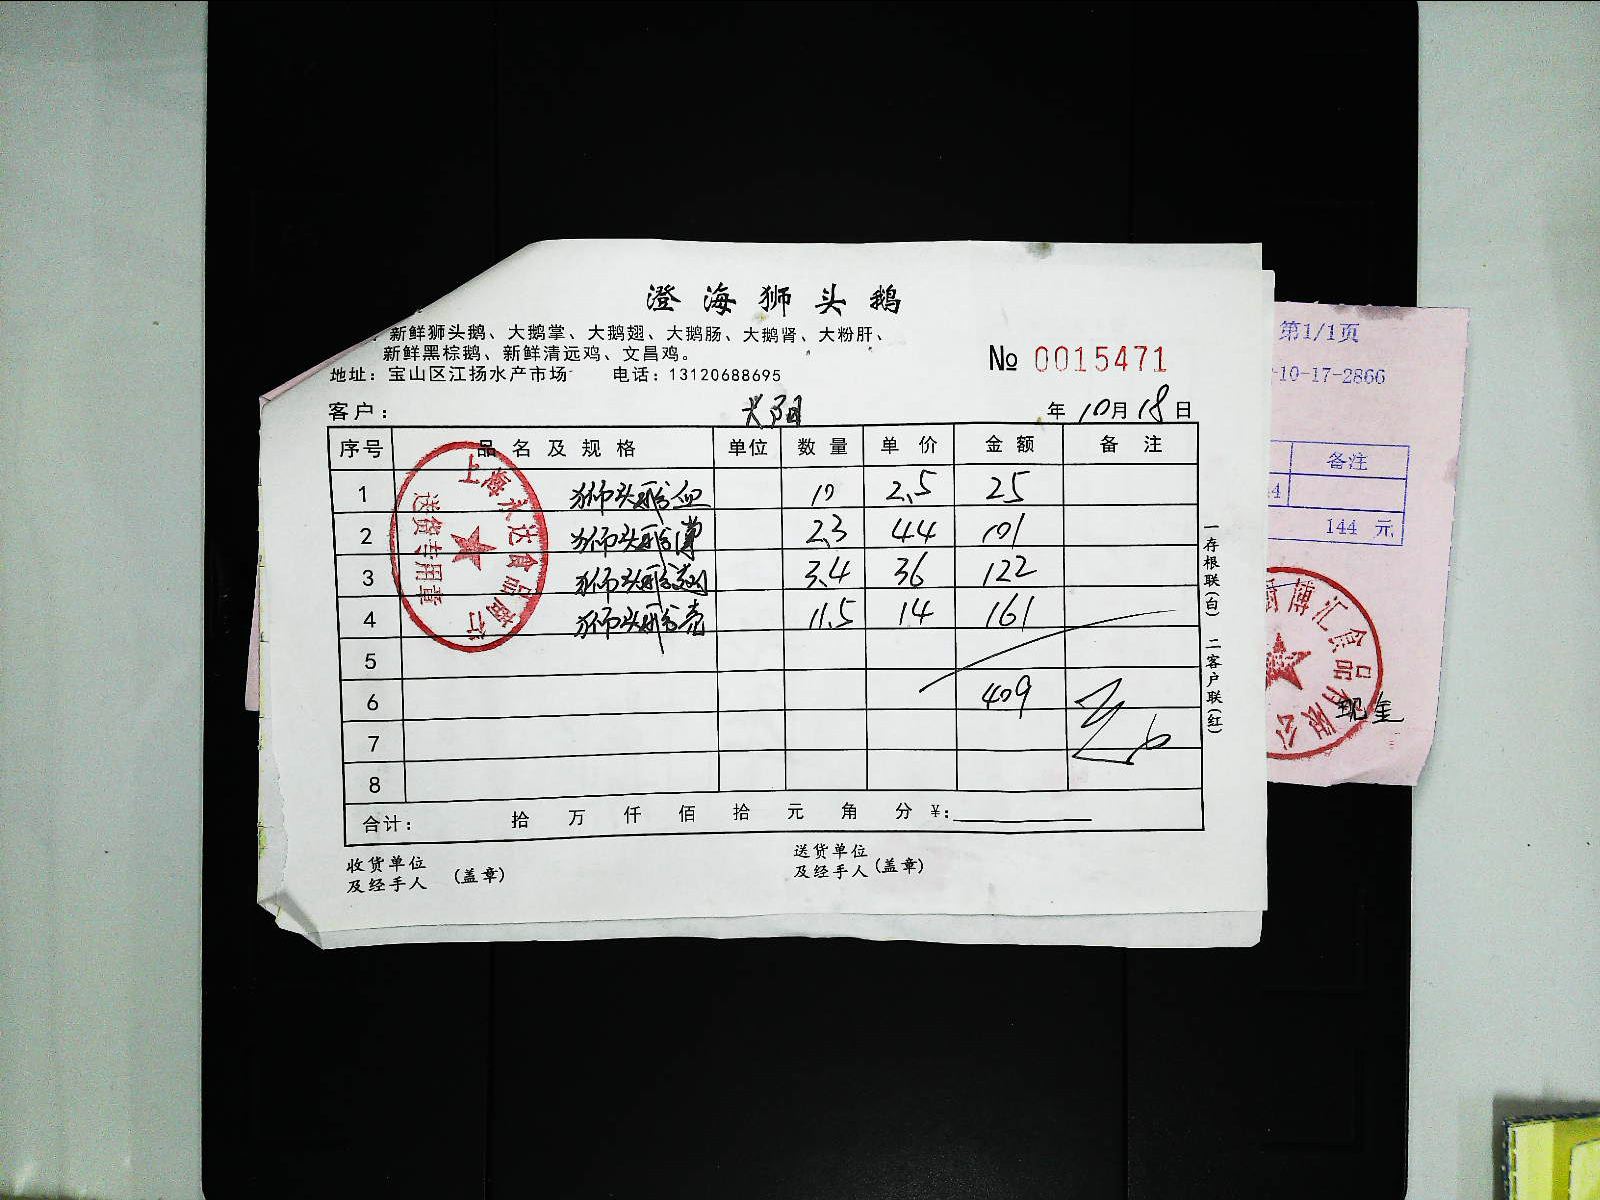 澄海狮头鹅
新鲜狮头鹅、大鹅掌、大鹅翅、大鹅肠、大鹅肾、大粉肝、
新鲜黑棕鹅、新鲜清远鸡、文昌鸡。
地址：宝山区江扬水产市场 电话：13120688695
№ 0015471
客户： 年10月18日
序号 品名及规格 单位 数量 单价 金额 备注
1 狮头鹅血 10 2.5 25
2 狮头鹅 2.3 44 101
3 狮头鹅翅 3.4 36 122
4 狮头鹅壳 11.5 14 161
5
6 409
7
8
合计： 拾 万 仟 佰 拾 元 角 分 ¥:
收货单位
及经手人 (盖章)
送货单位
及经手人 (盖章)
一存根联(白) 二客户联(红)
送货专用章
第1/1页
-10-17-2866
备注
144 元
博汇食品有限公
现金